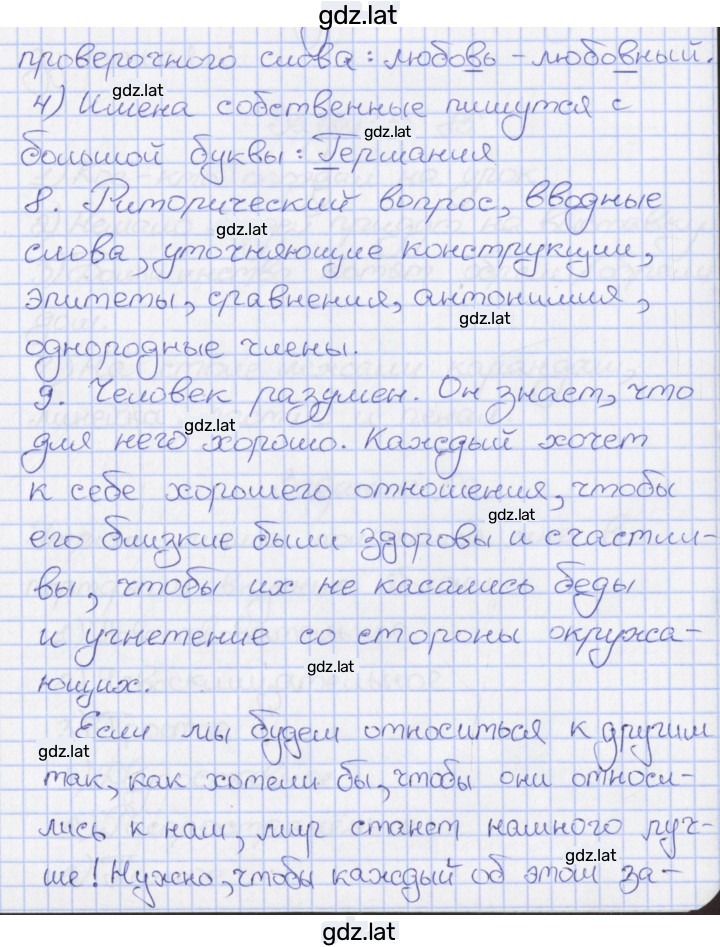 gdz.lat
проверочного слова: любовь - любовный.
gdz.lat
4) Имена собственные пишутся с
gdz.lat
большой буквы: Германия
8. Риторический вопрос, вводные
gdz.lat
слова, уточняющие конструкции,
эпитеты, сравнения, антонимия,
gdz.lat
однородные члены.
9. Человек разумен. Он знает, что
gdz.lat
для него хорошо. Каждый хочет
к себе хорошего отношения, чтобы
gdz.lat
его близкие были здоровы и счастли-
вы, чтобы их не касались беды
и угнетение со стороны окружа-
gdz.lat
ющих.
Если мы будем относиться к другим
gdz.lat
так, как хотели бы, чтобы они относи-
лись к нам, мир станет намного луч-
gdz.lat
ше! Нужно, чтобы каждый об этом за-
gdz.lat